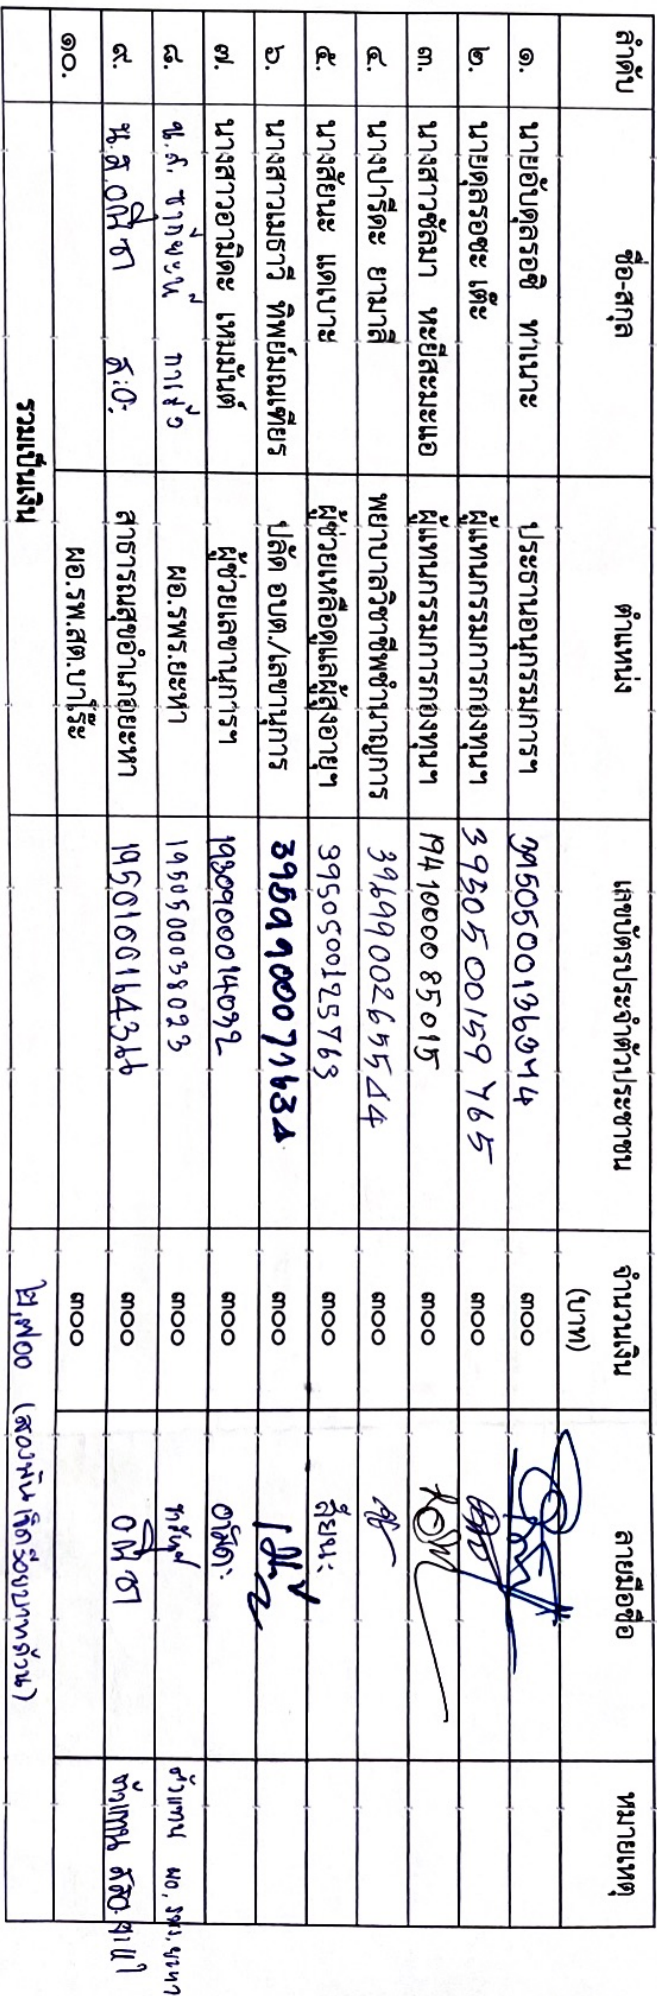 ลำดับ ชื่อ-สกุล ตำแหน่ง เลขบัตรประจำตัวประชาชน จำนวนเงิน (บาท) ลายมือชื่อ หมายเหตุ
๑. นายอับดุลรอซิ ทาเนาะ ประธานอนุกรรมการฯ ๓๐๐
๒. นายดุลรอซะ เด๊ะ ผู้แทนกรรมการกองทุนฯ 3950500159765 ๓๐๐
๓. นางสาวซัลมา หะยีสะมะแอ ผู้แทนกรรมการกองทุนฯ 1941000085015 ๓๐๐
๔. นางปารีดะ ยามาลี พยาบาลวิชาชีพชำนาญการ ๓๐๐
๕. นางสัยนะ แดเบาะ ผู้ช่วยเหลือดูแลผู้สูงอายุฯ 3950500125763 ๓๐๐ สัยนะ
๖. นางสาวเมธาวี ทิพย์มณเฑียร ปลัด อบต./เลขานุการ ๓๐๐
๗. นางสาวอามิดะ เหมมันต์ ผู้ช่วยเลขานุการฯ 1930900014032 ๓๐๐ อามิดะ
๘. น.ส. ผอ.รพร.ยะหา 1950500038023 ๓๐๐ ตัวแทน ผอ.รพร.ยะหา
๙. น.ส. สาธารณสุขอำเภอยะหา ๓๐๐ ตัวแทน
๑๐. ผอ.รพ.สต.บาโร๊ะ ๓๐๐
รวมเป็นเงิน ๒,๗๐๐ (สองพันเจ็ดร้อยบาทถ้วน)